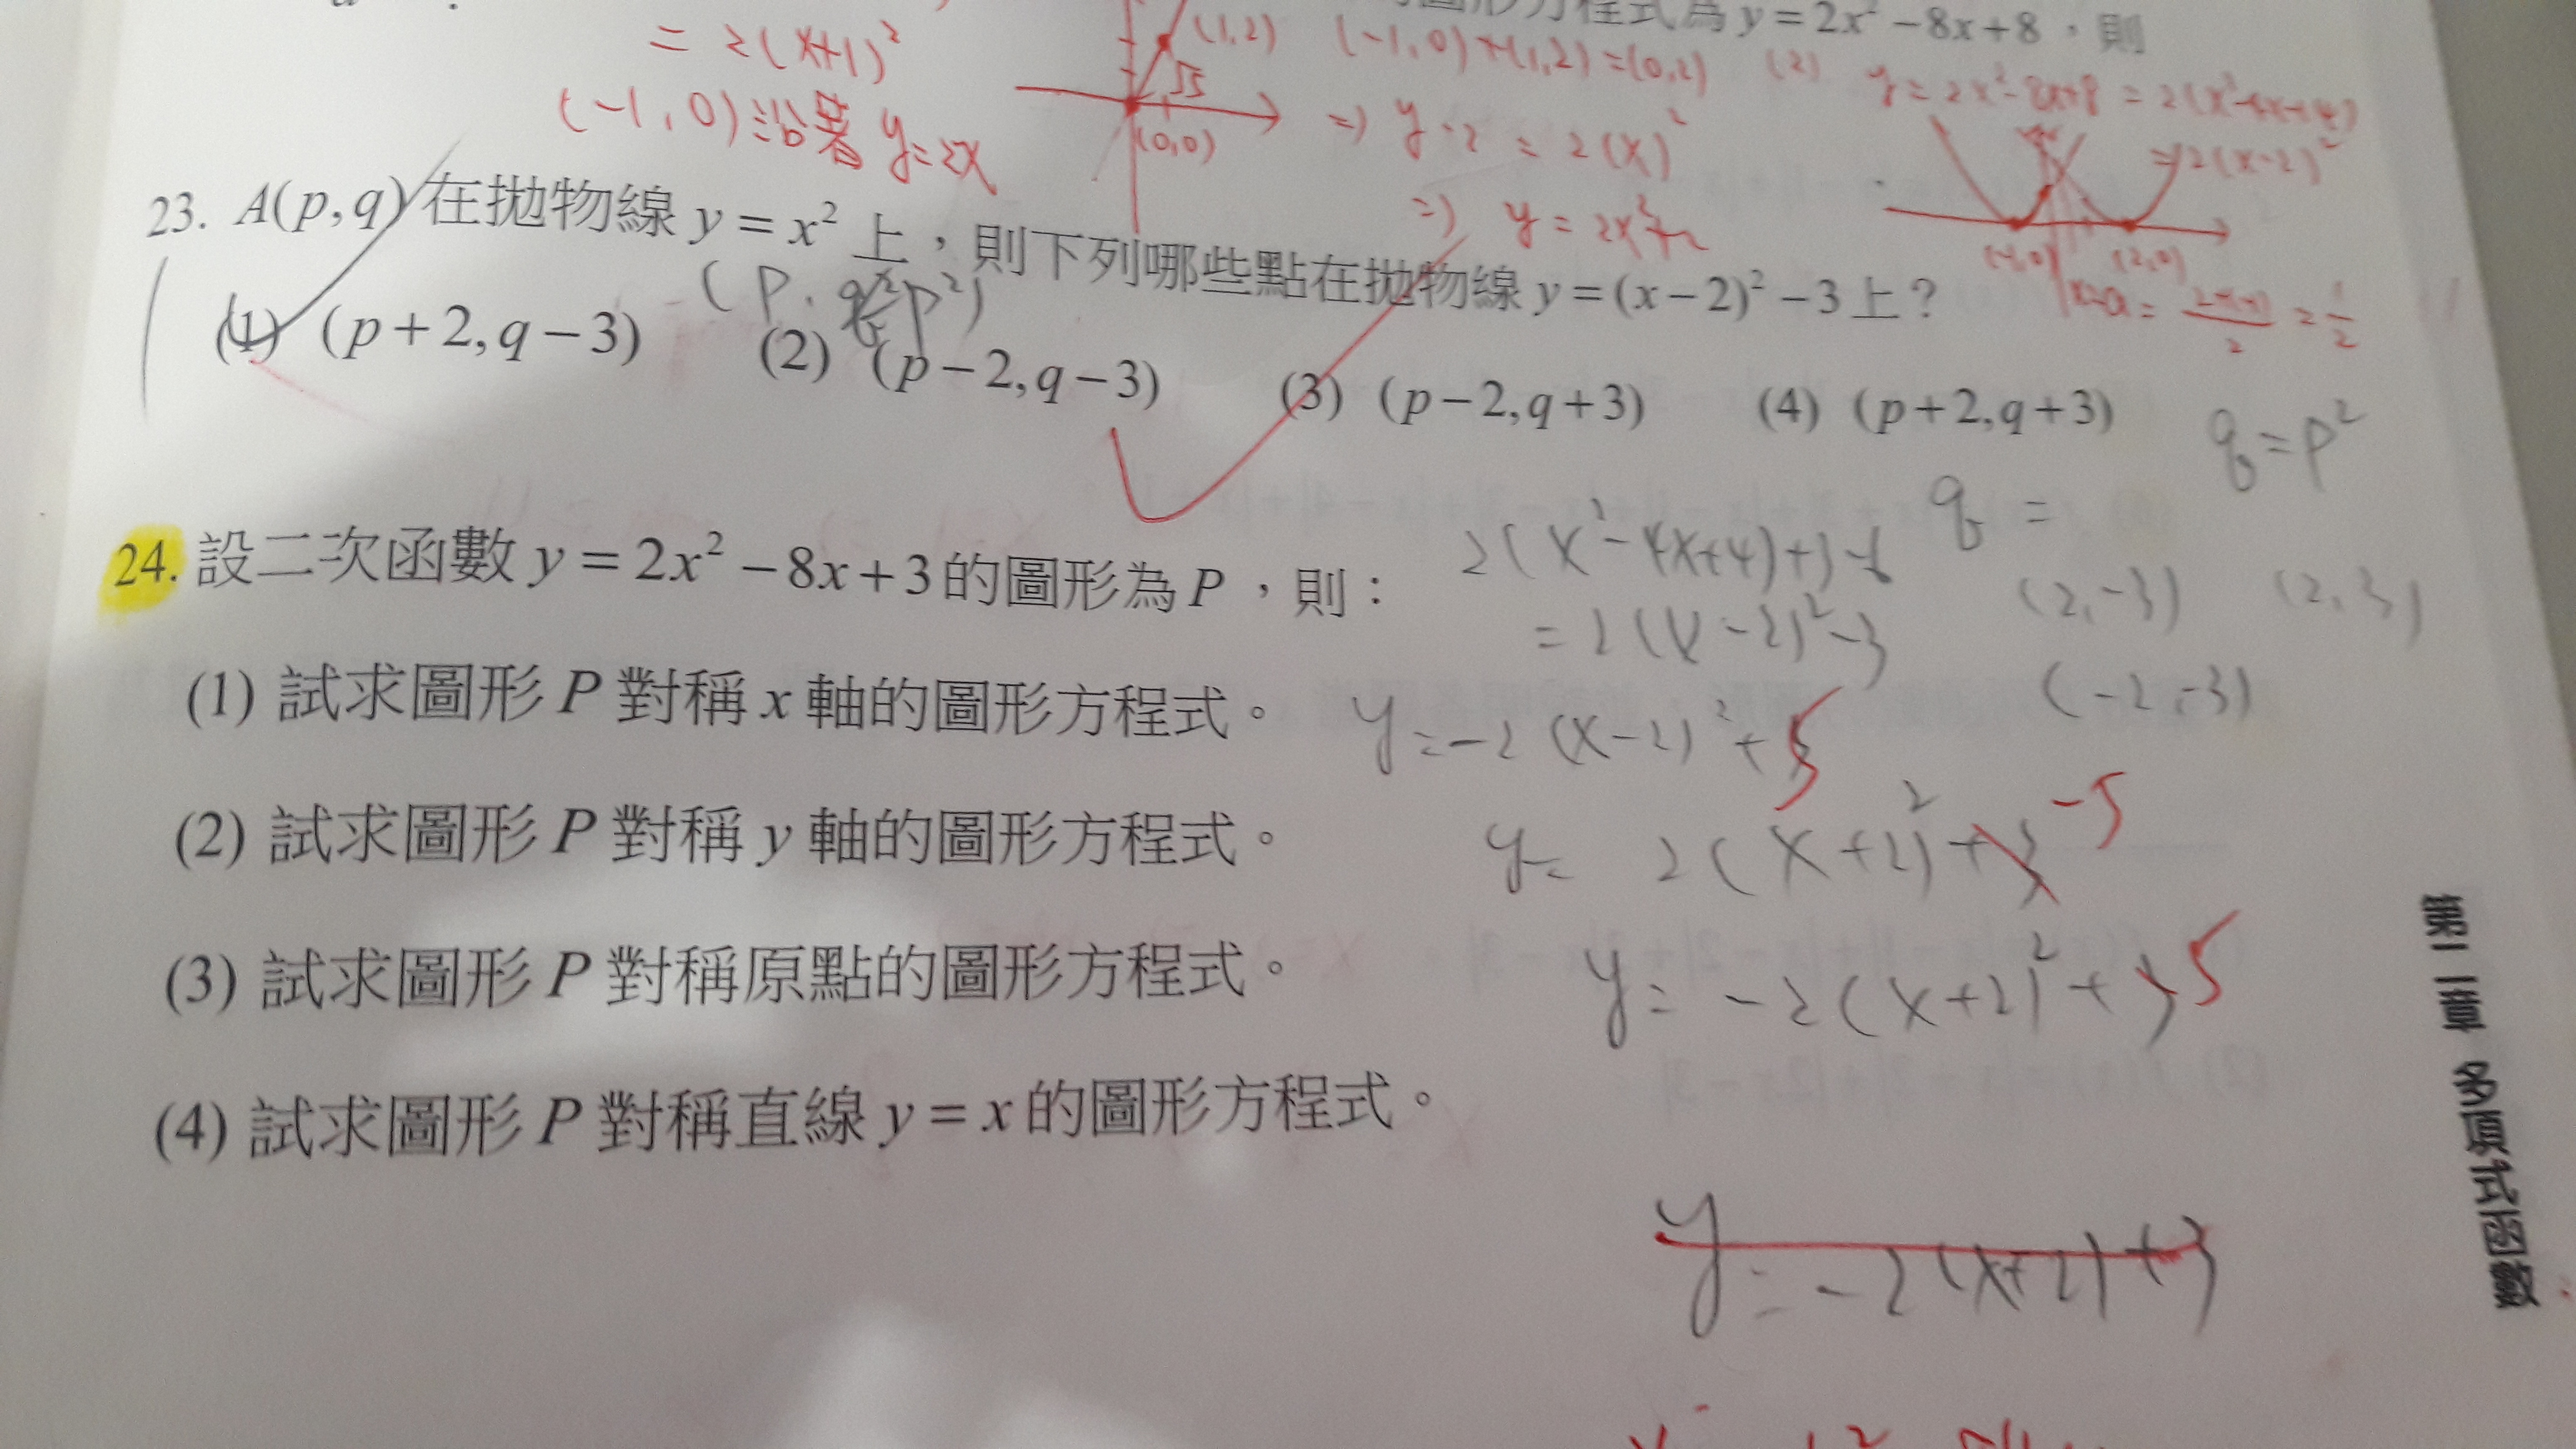 圖形方程式為 y = 2x² − 8x + 8，則
= 2(x+1)²
(1,2)
(-1,0)+(1,2)=(0,2)
(2) y = 2x²-8x+8 = 2(x²-4x+4)
√5
(-1,0)沿著 y=2x
(0,0)
=) y-2 = 2(x)²
=2(x-2)²
=) y = 2x²+2
23. A(p,q) 在拋物線 y = x² 上，則下列哪些點在拋物線 y = (x−2)² − 3 上？
(-1,0) (2,0)
(1) (p+2, q−3) (2) (p−2, q−3) (3) (p−2, q+3) (4) (p+2, q+3)
q = p²
q =
24. 設二次函數 y = 2x² − 8x + 3 的圖形為 P，則：
= 2(x-2)²-3
(2,-3) (2,3)
(-2,-3)
(1) 試求圖形 P 對稱 x 軸的圖形方程式。
y = -2(x-2)²+5
(2) 試求圖形 P 對稱 y 軸的圖形方程式。
y = 2(x+2)²+3 -5
(3) 試求圖形 P 對稱原點的圖形方程式。
y = -2(x+2)²+5
(4) 試求圖形 P 對稱直線 y = x 的圖形方程式。
y = -2(x+2)+3
第二章 多項式函數